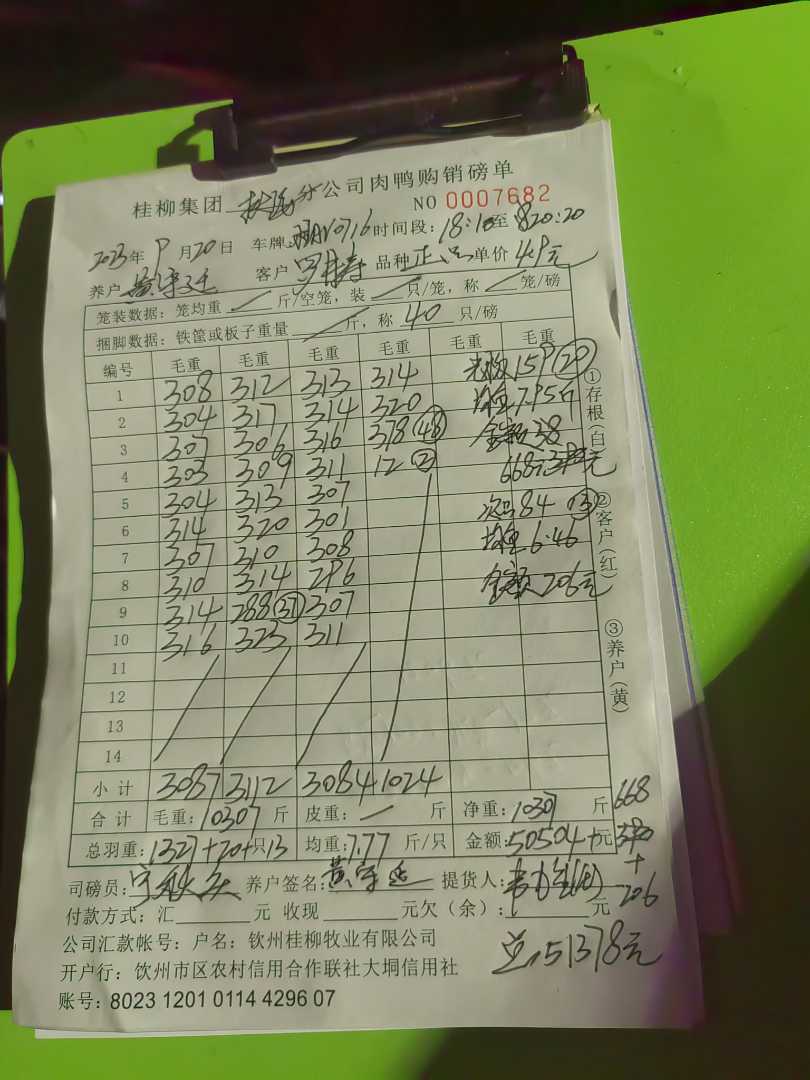 桂柳集团 分公司肉鸭购销磅单
NO 0007682
2023年9月20日 车牌 时间段:18:10至820:20
养户 黄 客户 罗 品种 正品 单价 4.9元
笼装数据: 笼均重 / 斤/空笼,装 / 只/笼,称 / 笼/磅
捆脚数据: 铁筐或板子重量 / 斤,称 40 只/磅
编号 毛重 毛重 毛重 毛重 毛重 毛重
1 308 312 313 314 159 (20)
2 304 317 314 320 7.95斤
3 307 306 316 378 (48) 金额
4 303 309 311 12 (2) 668元
5 304 313 307 次品84 (13)
6 314 320 301 均重6.46
7 307 310 308
8 310 314 296 金额206元
9 314 288 (37) 307
10 316 323 311
11
12
13
14
小计 3087 3112 3084 1024
合计 毛重:10307斤 皮重: / 斤 净重:10307斤
668
总羽重:1327+20+只13 均重:7.77斤/只 金额:50504+元
+
206
司磅员: 养户签名: 黄 提货人:
付款方式:汇 元 收现 元欠(余): 元
公司汇款帐号: 户名: 钦州桂柳牧业有限公司
总:51378元
开户行: 钦州市区农村信用合作联社大垌信用社
账号: 8023 1201 0114 4296 07
①存根(白) ②客户(红) ③养户(黄)